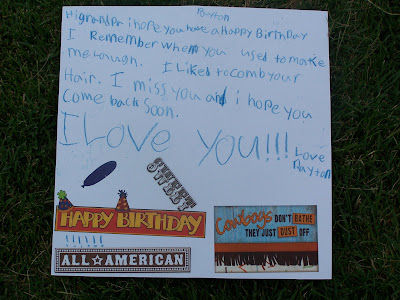 Payton
Hi grandpa i hope you have a Happy Birthday
I Remember when you used to make
me laugh. I Liked to comb your
Hair. I miss you and i hope you
come back soon.
I Love You!!! Love
Payton
SWEET
HAPPY BIRTHDAY
ALL ★ AMERICAN
Cowboys DON'T BATHE
THEY JUST DUST OFF